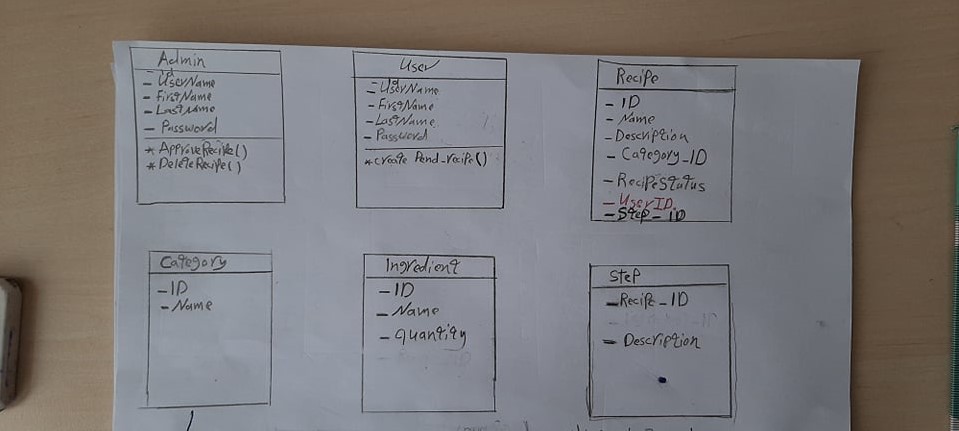 Admin
- id
- UserName
- FirstName
- LastName
- Password
* ApproveRecipe()
* DeleteRecipe()
User
- id
- UserName
- FirstName
- LastName
- Password
* create Pend_recipe()
Recipe
- ID
- Name
- Description
- Category_ID
- RecipeStatus
- UserID
- Step_ID
Category
- ID
- Name
Ingredient
- ID
- Name
- Quantity
Step
- Recipe_ID
- Description